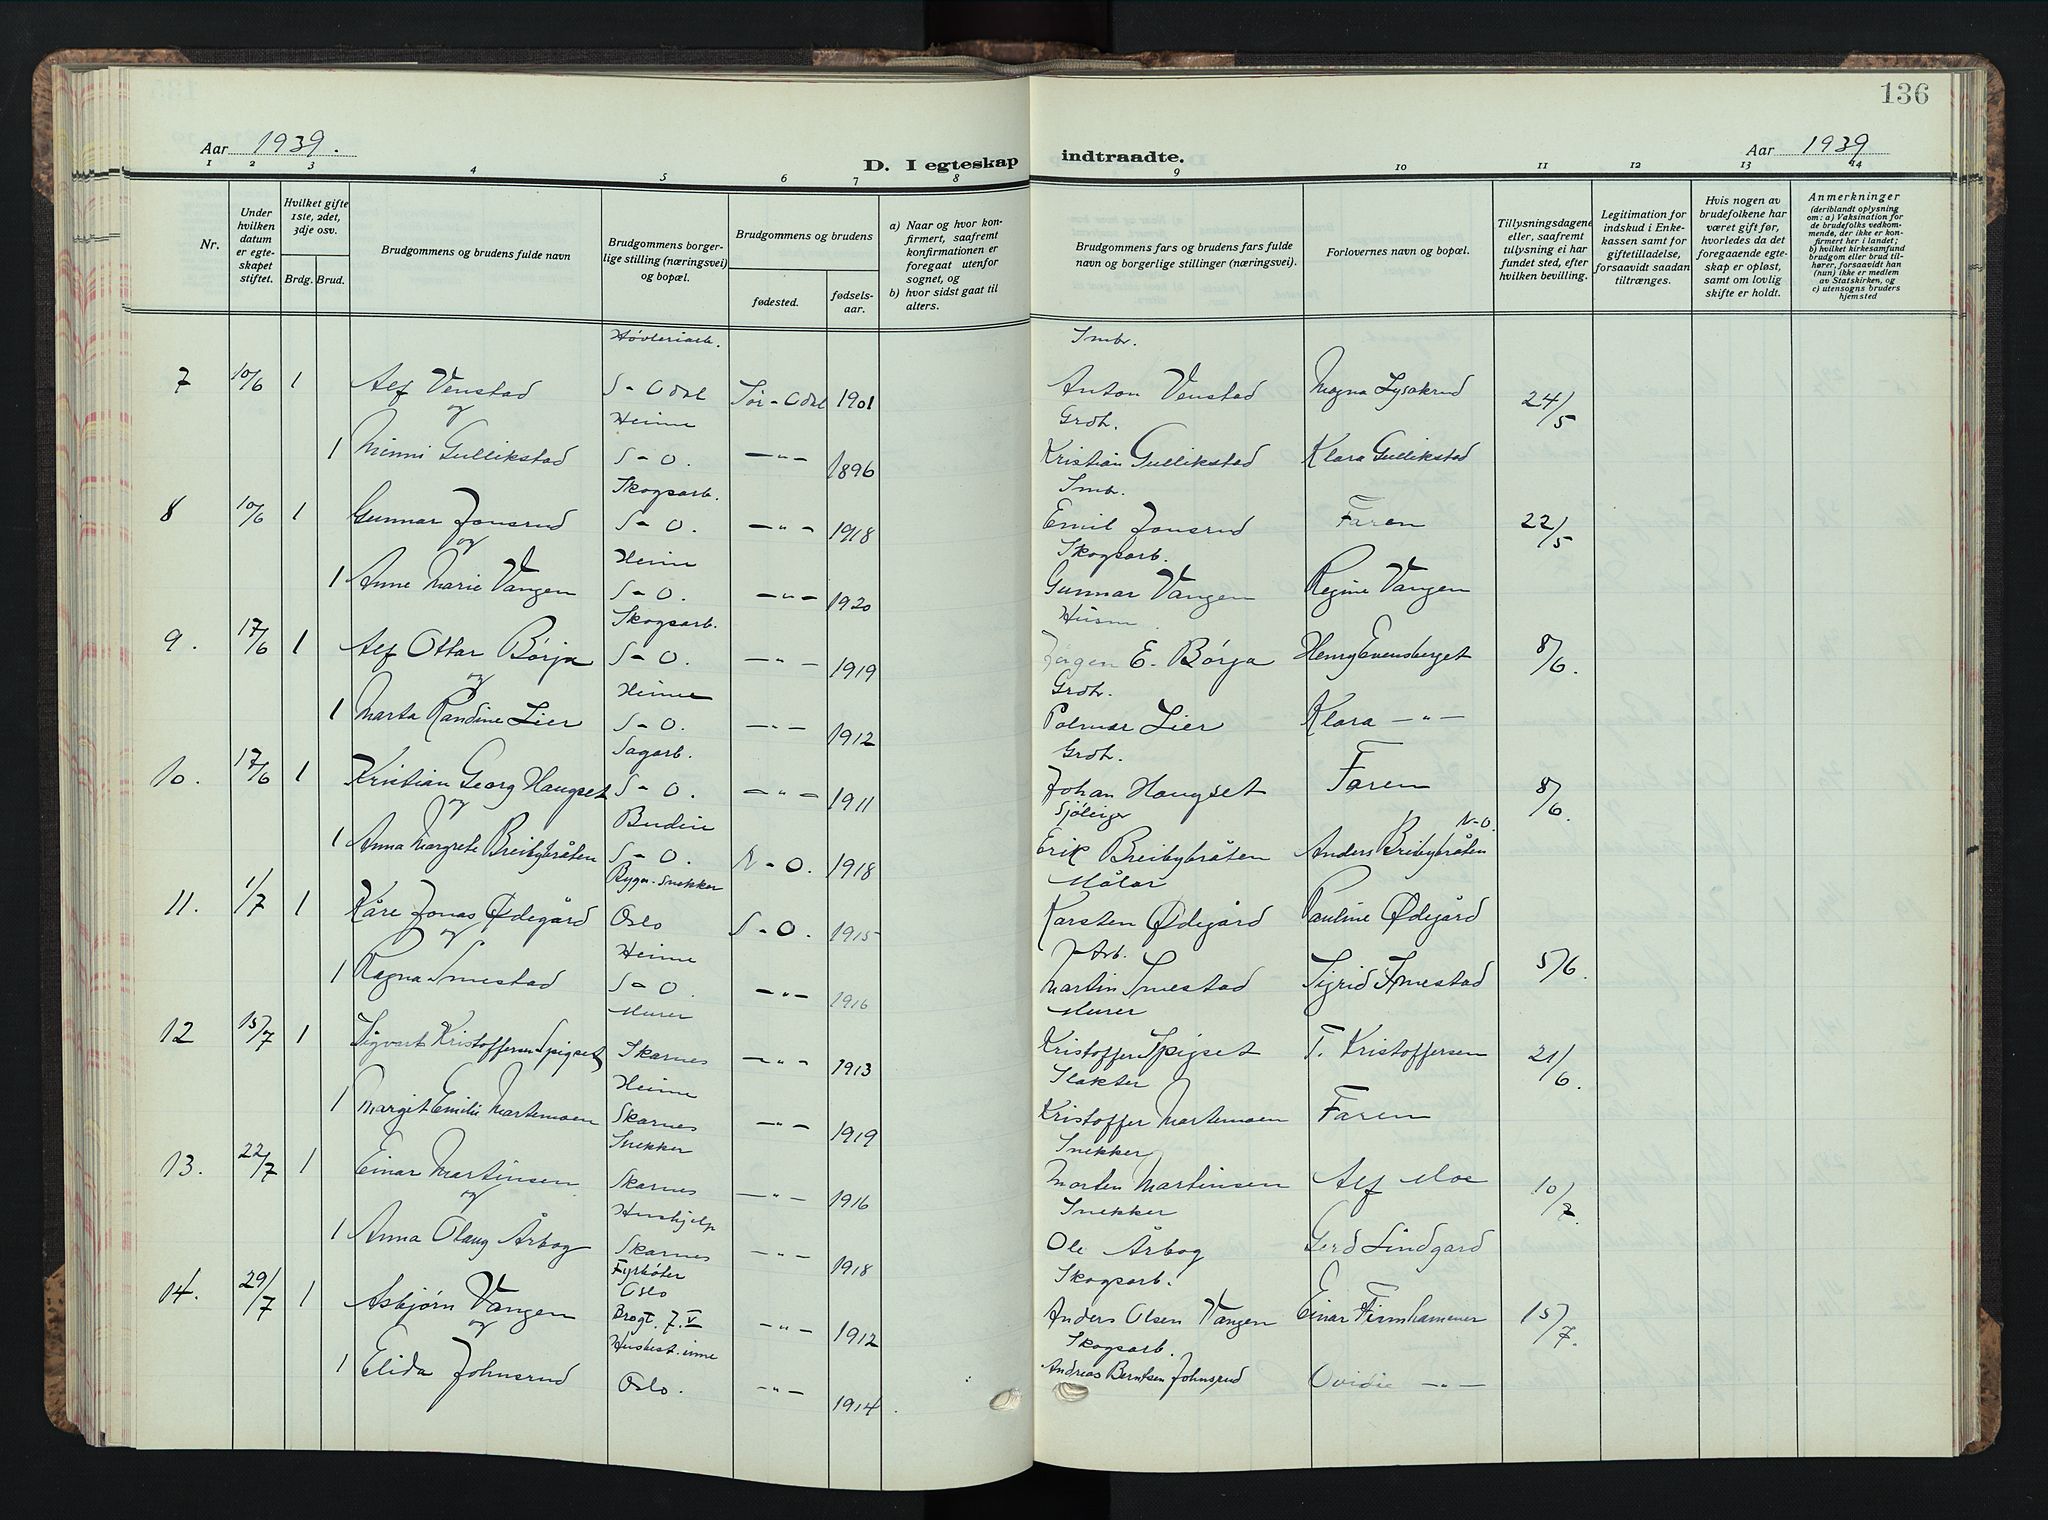 136
Aar 1939.
D. I egteskap indtraadte.
Aar 1939
1 2 3 4 5 6 7 8 9 10 11 12 13 14
Nr.
Under hvilken datum er egteskapet stiftet.
Hvilket gifte 1ste, 2det, 3dje osv.
Brdg. Brud.
Brudgommens og brudens fulde navn
Brudgommens borgerlige stilling (næringsvei) og bopæl.
Brudgommens og brudens
fødested. fødselsaar.
a) Naar og hvor konfirmert, saafremt konfirmationen er foregaat utenfor sognet, og
b) hvor sidst gaat til alters.
Brudgommens fars og brudens fars fulde navn og borgerlige stillinger (næringsvei).
Forlovernes navn og bopæl.
Tillysningsdagene eller, saafremt tillysning ei har fundet sted, efter hvilken bevilling.
Legitimation for indskud i Enkekassen samt for giftetilladelse, forsaavidt saadan tiltrænges.
Hvis nogen av brudefolkene har været gift før, hvorledes da det foregaaende egteskap er opløst, samt om lovlig skifte er holdt.
Anmerkninger
(deriblandt oplysning om: a) Vaksination for de brudefolks vedkommende, der ikke er konfirmert her i landet; b) hvilket kirkesamfund brudgom eller brud tilhører, forsaavidt han (hun) ikke er medlem av Statskirken, og c) utensogns bruders hjemsted
Høvleriarb. Smbr.
7 10/6 1 Alf Venstad S-Odal Sør-Odal 1901 Anton Venstad Magna Lysakrud 24/5
og Heime Grdbr.
1 Minni Gullikstad S-O. —"— 1896 Kristian Gullikstad Klara Gullikstad
Skogsarb. Smbr.
8 10/6 1 Gunnar Jonsrud S-O. —"— 1918 Emil Jonsrud Faren 22/5
og Heime Skogsarb.
1 Anne Marie Vangen S-O. —"— 1920 Gunnar Vangen Regine Vangen
Skogsarb. Husm
9. 17/6 1 Alf Ottar Børja S-O. —"— 1919 Jørgen E. Børja Henry Evensberget 8/6.
og Heime Grdbr.
1 Marta Randine Lier S-O. —"— 1912 Palmar Lier Klara —"—
Sagarb. Grdbr.
10. 17/6 1 Kristian Georg Haugset S-O. —"— 1911 Johan Haugset Faren 8/6.
og Budeie Sjøleiger N-O.
1 Anna Margrete Breibybråten S-O. N-O. 1918 Erik Breibybråten Anders Breibybråten
Bygn.-snekker Målar
11. 1/7 1 Kåre Jonas Ødegård Oslo S-O. 1915 Karsten Ødegård Pauline Ødegård
og Heime Arb. 5/6.
1 Ragna Smestad S-O. —"— 1916 Martin Smestad Sigrid Smestad
Murer Murer
12 15/7 1 Sigvart Kristoffersen Spigset Skarnes —"— 1913 Kristoffer Spigset T. Kristoffersen 21/6.
Heime Slakter
1 Margit Emilie Martemoen Skarnes —"— 1919 Kristoffer Martemoen Faren
Snekker Snekker
13. 22/7 1 Einar Martinsen Skarnes —"— 1916 Morten Martinsen Alf Moe 10/7.
og Hushjelp Snekker
1 Anna Olaug Årbog Skarnes —"— 1918 Ole Årbog Gerd Lindgard
Fyrbøter Skogsarb.
Oslo
14. 29/7 1 Asbjørn Vangen Brogt. 7 V —"— 1912 Anders Olsen Vangen Einar Firmhammer 15/7.
og Husbest.inne Skogsarb.
1 Elida Johnsrud Oslo. —"— 1914 Andreas Berntsen Johnsrud Ovidie —"—